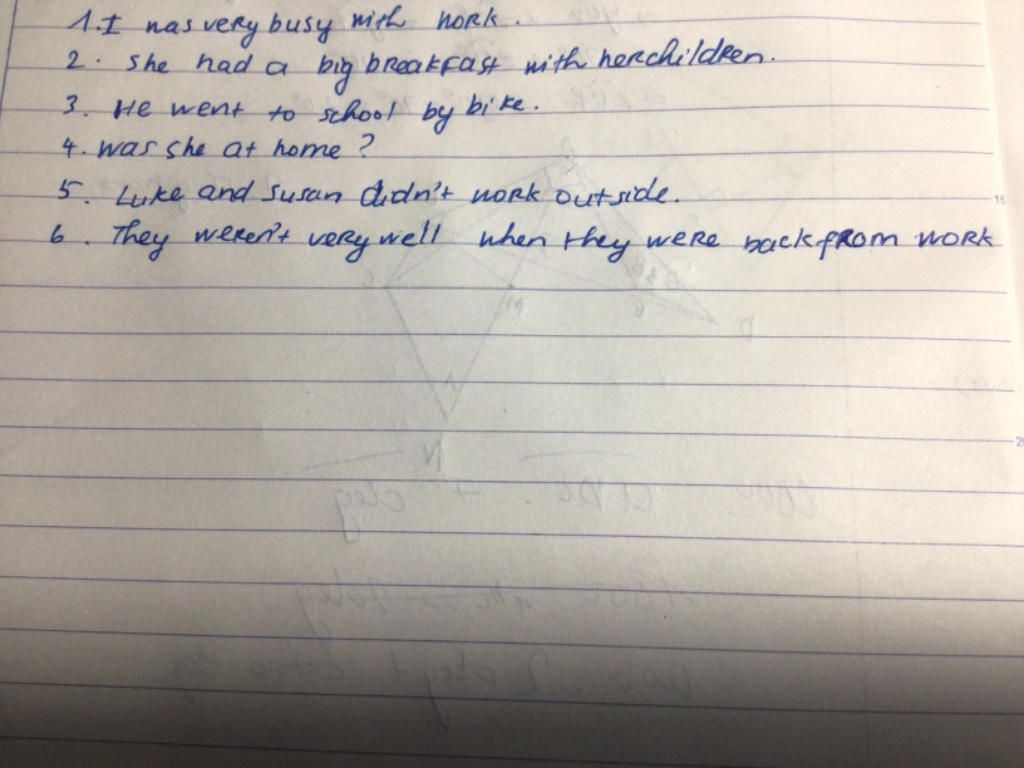 1. I was very busy with work.
2. she had a big breakfast with her children.
3. He went to school by bike.
4. was she at home?
5. Luke and Susan didn't work outside.
6. They weren't very well when they were back from work
15